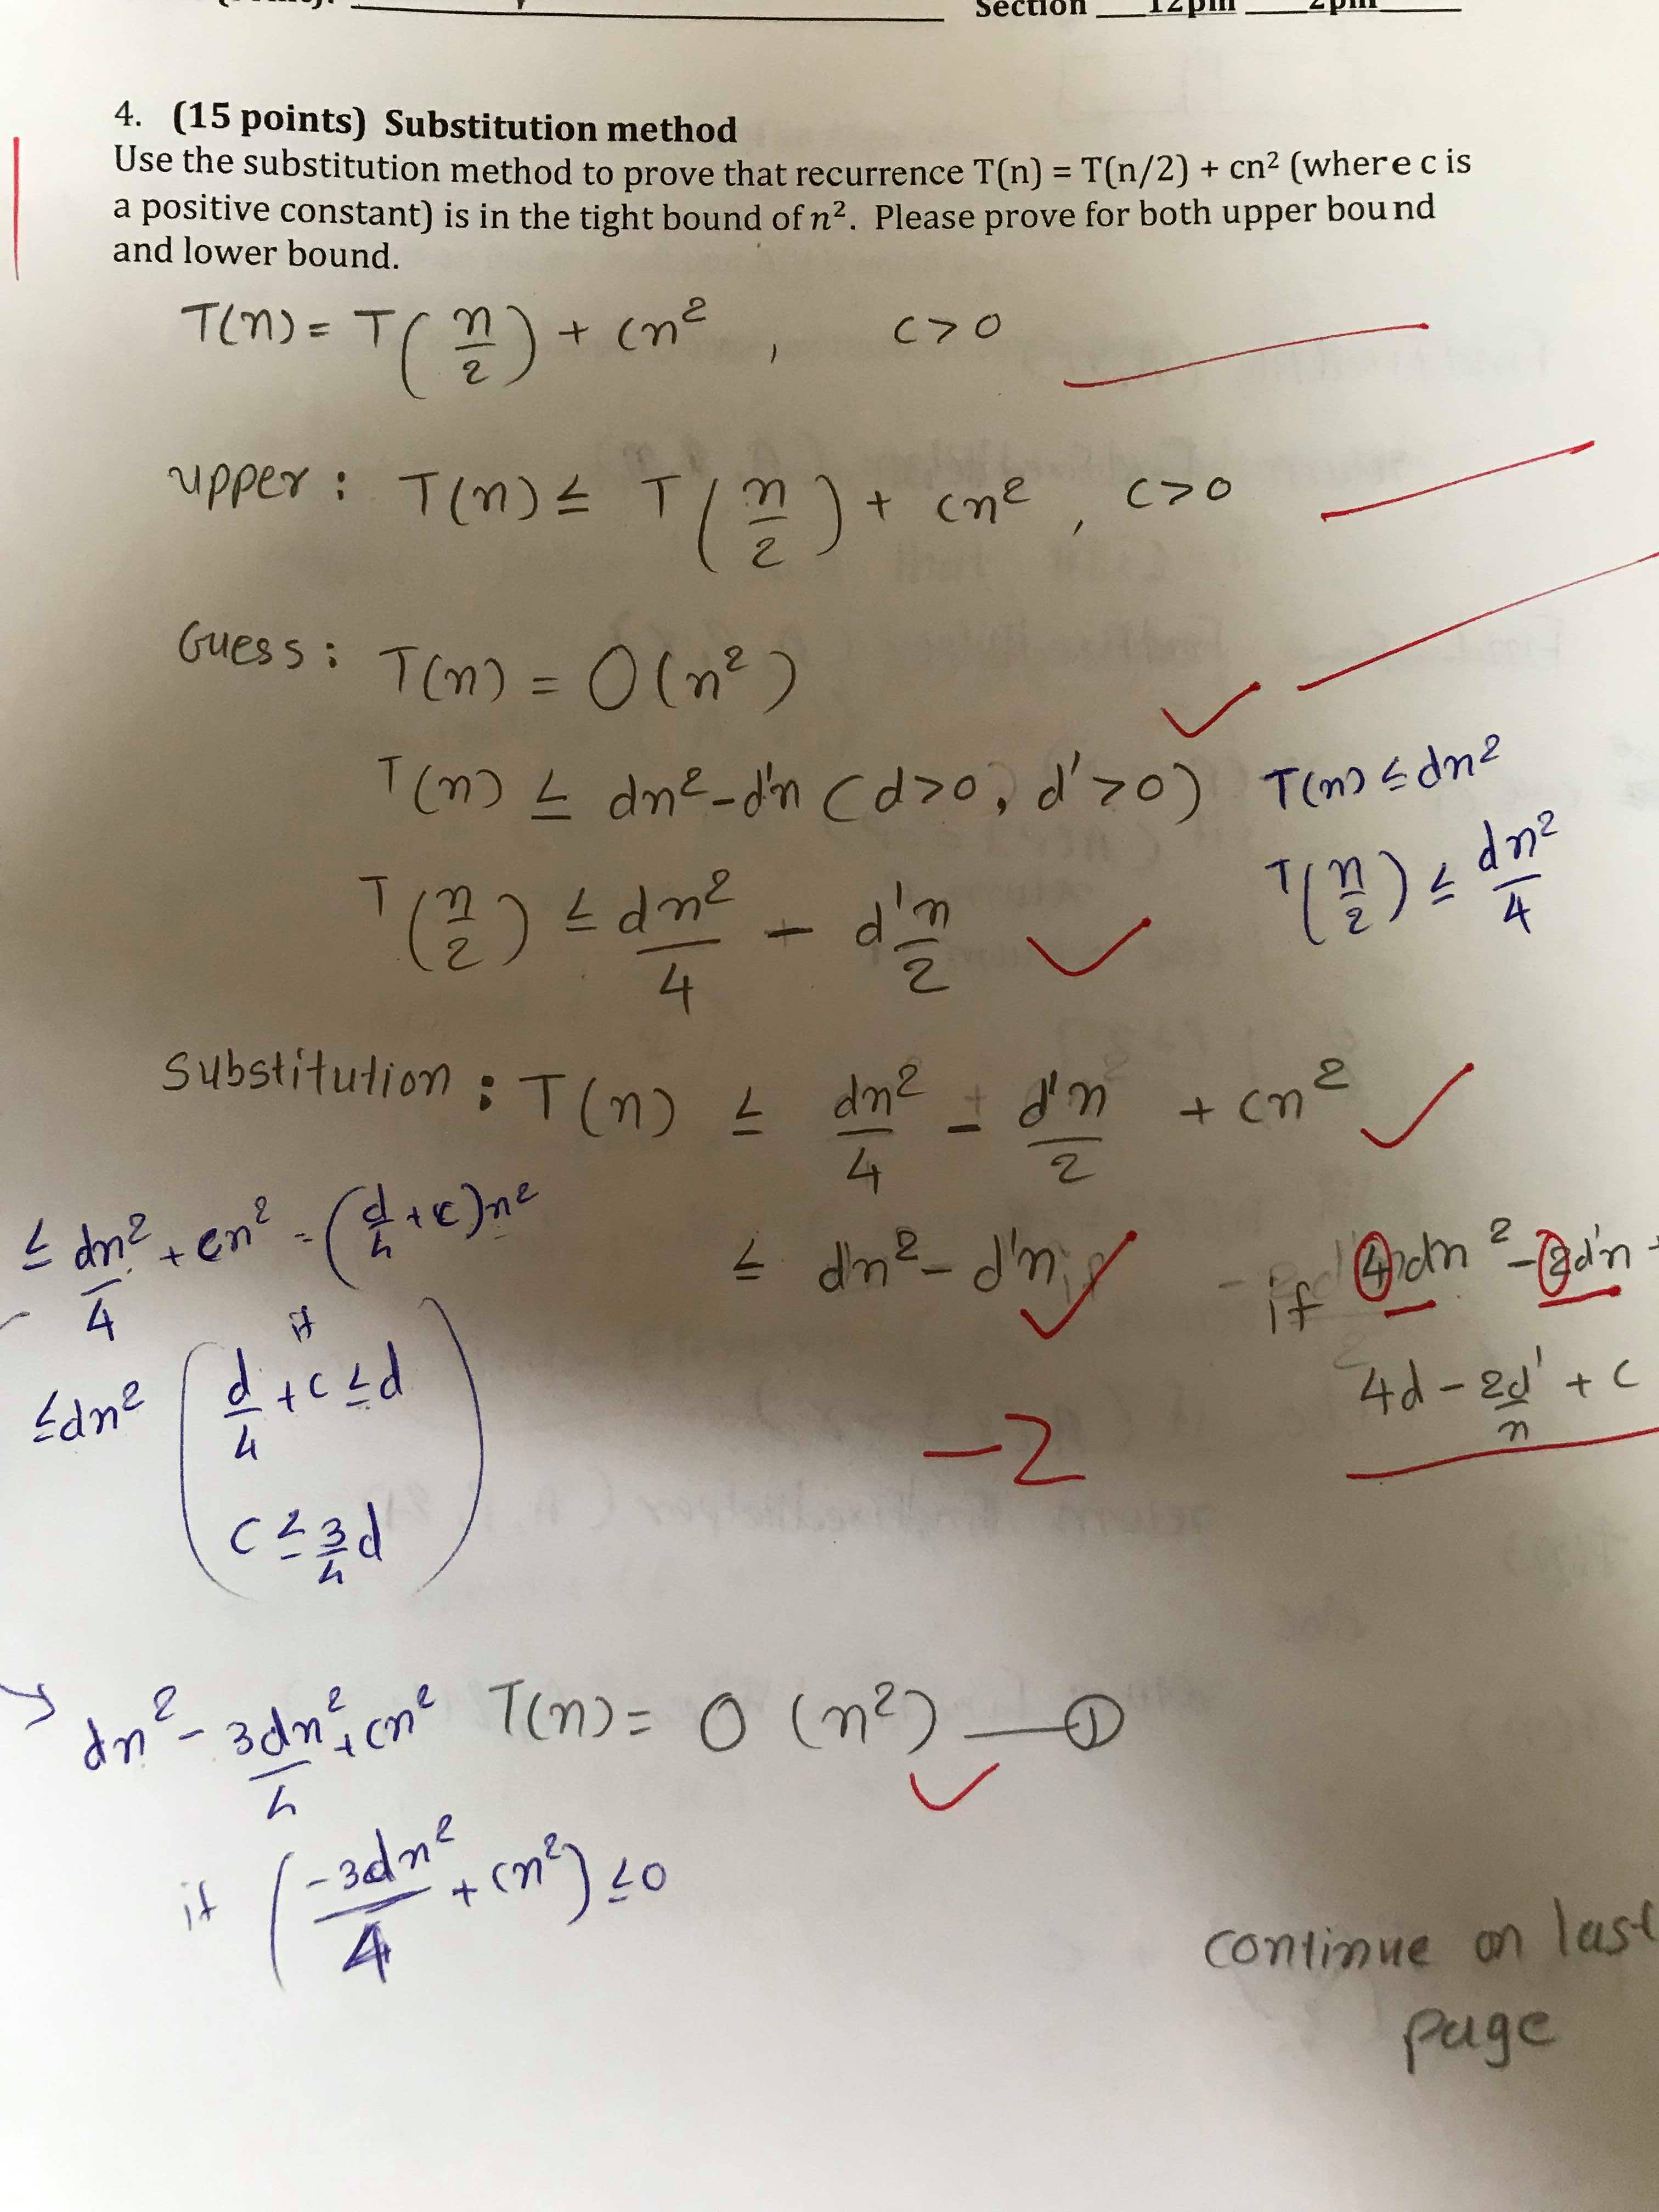 Section ___12pm ___2pm___
4. (15 points) Substitution method
Use the substitution method to prove that recurrence T(n) = T(n/2) + cn² (where c is
a positive constant) is in the tight bound of n². Please prove for both upper bound
and lower bound.
T(n) = T(n/2) + cn² , c>0
upper : T(n) ≤ T(n/2) + cn² , c>0
Guess : T(n) = O(n²)
T(n) ≤ dn² - d'n (d>0, d'>0) T(n) ≤ dn²
T(n/2) ≤ dn²/4 - d'n/2 T(n/2) ≤ dn²/4
Substitution : T(n) ≤ dn²/4 - d'n/2 + cn²
≤ dn²/4 + cn² = (d/4 + c)n²
≤ dn² - d'n if 4dn² - 2d'n +
≤ dn² ( d/4 + c ≤ d if
4d - 2d'/n + c
-2
c ≤ 3/4 d )
dn² - 3dn²/4 + cn² T(n) = O(n²) — ①
if (-3dn²/4 + cn²) ≤ 0
continue on last
page